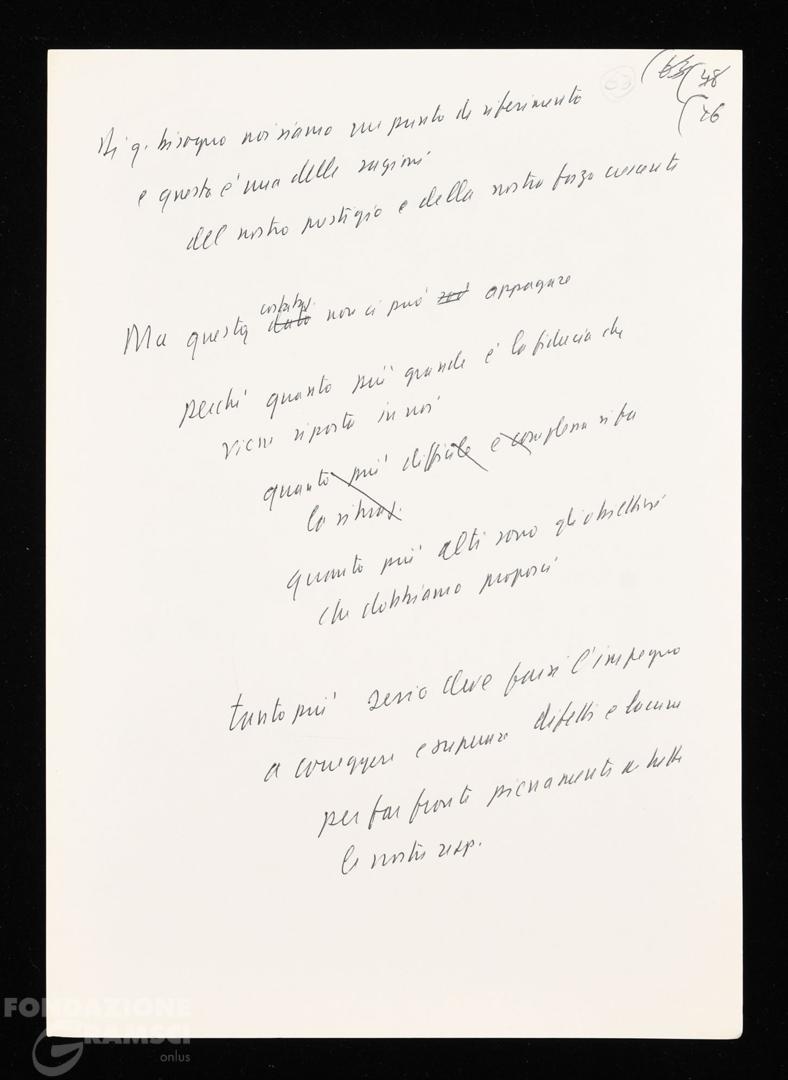 63 (63 (48
(46
Di q. bisogno noi siamo un punto di riferimento
e questo è una delle ragioni
del nostro prestigio e della nostra forza crescente
constataz.
Ma questa dato non ci può appagare
perché quanto più grande è la fiducia che
viene riposta in noi
quanto più difficile e complessa si fa
la situaz.
quanto più alti sono gli obiettivi
che dobbiamo proporci
tanto più serio deve farsi l'impegno
a correggere e superare difetti e lacune
per far fronte pienamente a tutte
le nostre resp.
FONDAZIONE
GRAMSCI
onlus